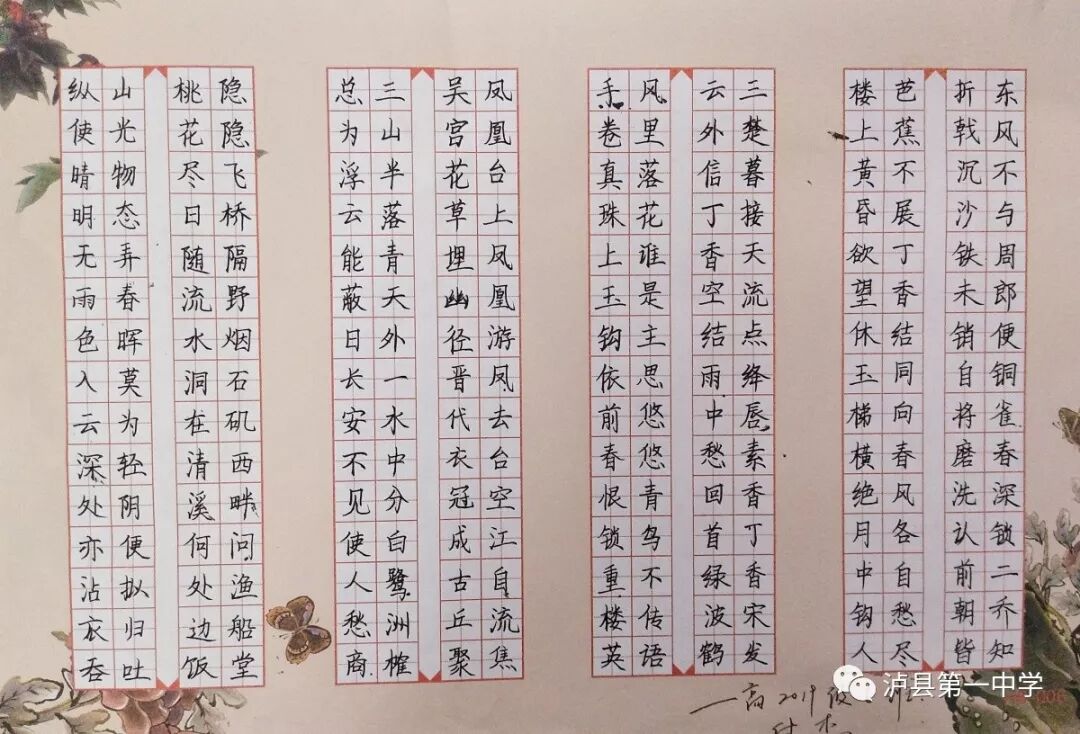 东风不与周郎便铜雀春深锁二乔知
折戟沉沙铁未销自将磨洗认前朝皆
芭蕉不展丁香结同向春风各自愁尽
楼上黄昏欲望休玉梯横绝月中钩人
三楚暮接天流点绛唇素香丁香宋发
云外信丁香空结雨中愁回首绿波鹤
风里落花谁是主思悠悠青鸟不传语
手卷真珠上玉钩依前春恨锁重楼英
凤凰台上凤凰游凤去台空江自流焦
吴宫花草埋幽径晋代衣冠成古丘聚
三山半落青天外一水中分白鹭洲榷
总为浮云能蔽日长安不见使人愁商
隐隐飞桥隔野烟石矶西畔问渔船堂
桃花尽日随流水洞在清溪何处边饭
山光物态弄春晖莫为轻阴便拟归吐
纵使晴明无雨色入云深处亦沾衣吞
高2019
泸县第一中学